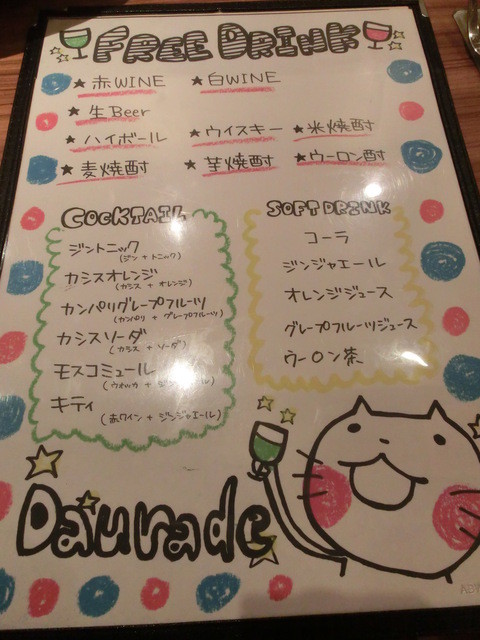 FREE DRINK
★ 赤WINE ★ 白WINE
★ 生Beer
★ ハイボール ★ ウイスキー ★ 米焼酎
★ 麦焼酎 ★ 芋焼酎 ★ ウーロン酎
COCKTAIL
ジントニック
(ジン + トニック)
カシスオレンジ
(カシス + オレンジ)
カンパリグレープフルーツ
(カンパリ + グレープフルーツ)
カシスソーダ
(カシス + ソーダ)
モスコミュール
(ウォッカ +
キティ
(赤ワイン + ジンジャエール)
SOFT DRINK
コーラ
ジンジャエール
オレンジジュース
グレープフルーツジュース
ウーロン茶
Daurade